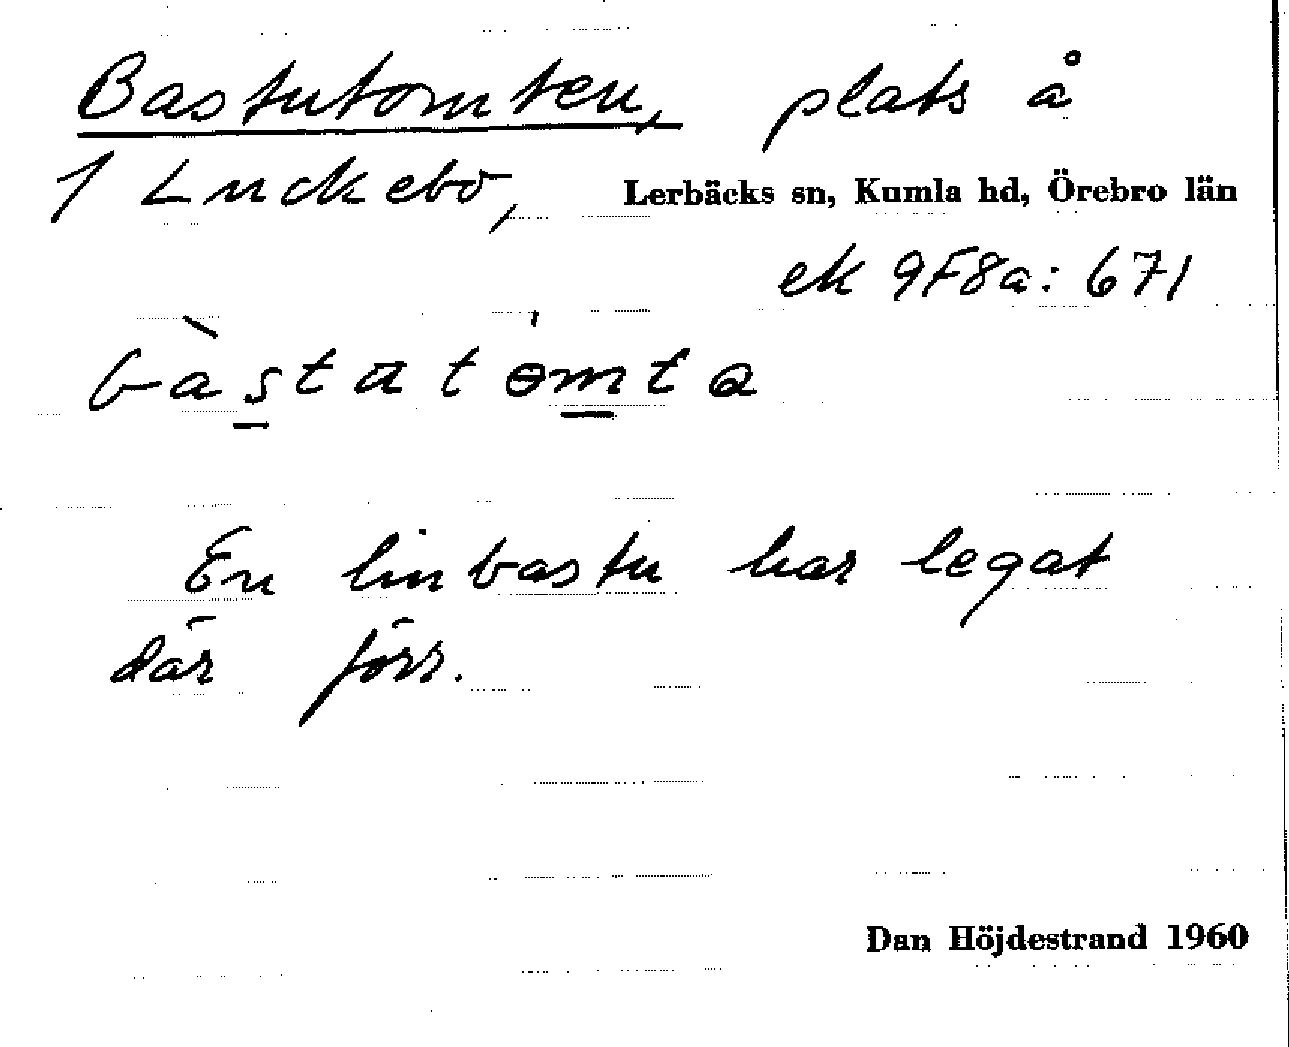 Bastutomten, plats å
1 Luckebo, Lerbäcks sn, Kumla hd, Örebro län
ek 9F8a: 671
bàstatòmta
En linbastu har legat
där förr.
Dan Höjdestrand 1960